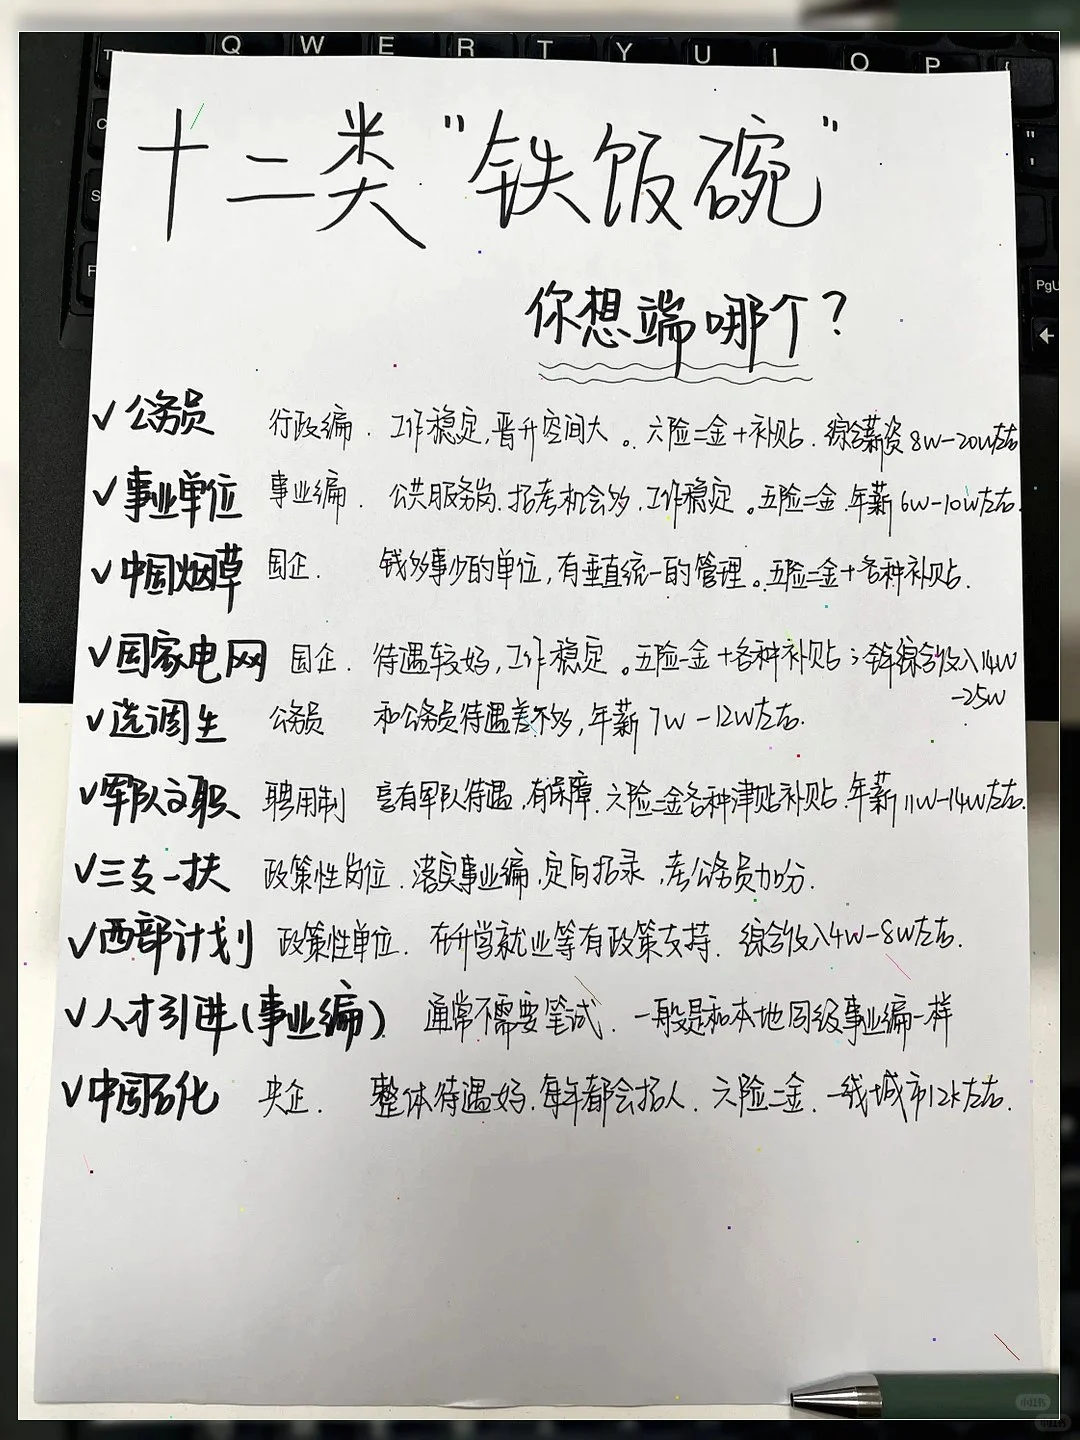 Q W E R T Y U I O P
十二类“铁饭碗”
你想端哪个?
✓公务员 行政编. 工作稳定,晋升空间大。六险二金+补贴.综合薪资8W-20W左右
✓事业单位 事业编. 公共服务岗.招考机会多.工作稳定。五险二金.年薪6W-10W左右.
✓中国烟草 国企. 钱多事少的单位,有垂直统一的管理。五险二金+各种补贴.
✓国家电网 国企. 待遇较好,工作稳定。五险一金+各种补贴;年综合收入14W
-25W
✓选调生 公务员 和公务员待遇差不多,年薪7W-12W左右.
✓军队文职 聘用制 享有军队待遇.有保障.六险二金各种津贴补贴.年薪11W-14W左右.
✓三支一扶 政策性岗位.落实事业编,定向招录,考公务员加分.
✓西部计划 政策性单位. 在升学就业等有政策支持. 综合收入4W-8W左右.
✓人才引进(事业编) 通常不需要笔试. 一般是和本地同级事业编一样
✓中国石化 央企. 整体待遇好.每年都会招人. 六险二金.一线城市12k左右.
PgU
小红书
小红书